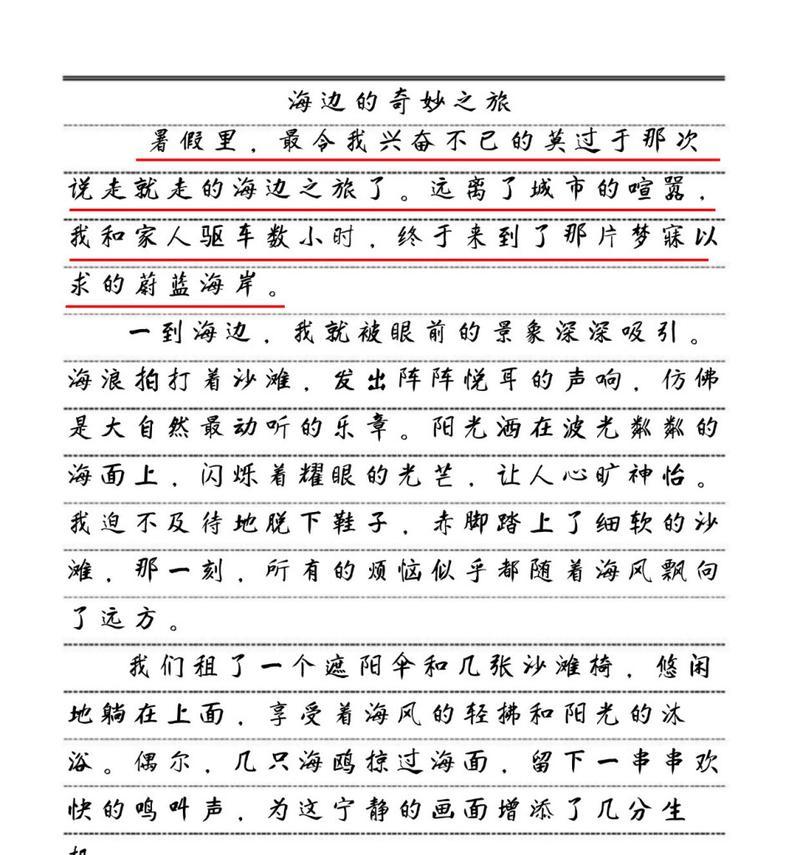 海边的奇妙之旅
暑假里，最令我兴奋不已的莫过于那次
说走就走的海边之旅了。远离了城市的喧嚣，
我和家人驱车数小时，终于来到了那片梦寐以
求的蔚蓝海岸。
一到海边，我就被眼前的景象深深吸引。
海浪拍打着沙滩，发出阵阵悦耳的声响，仿佛
是大自然最动听的乐章。阳光洒在波光粼粼的
海面上，闪烁着耀眼的光芒，让人心旷神怡。
我迫不及待地脱下鞋子，赤脚踏上了细软的沙
滩，那一刻，所有的烦恼似乎都随着海风飘向
了远方。
我们租了一个遮阳伞和几张沙滩椅，悠闲
地躺在上面，享受着海风的轻拂和阳光的沐
浴。偶尔，几只海鸥掠过海面，留下一串串欢
快的鸣叫声，为这宁静的画面增添了几分生